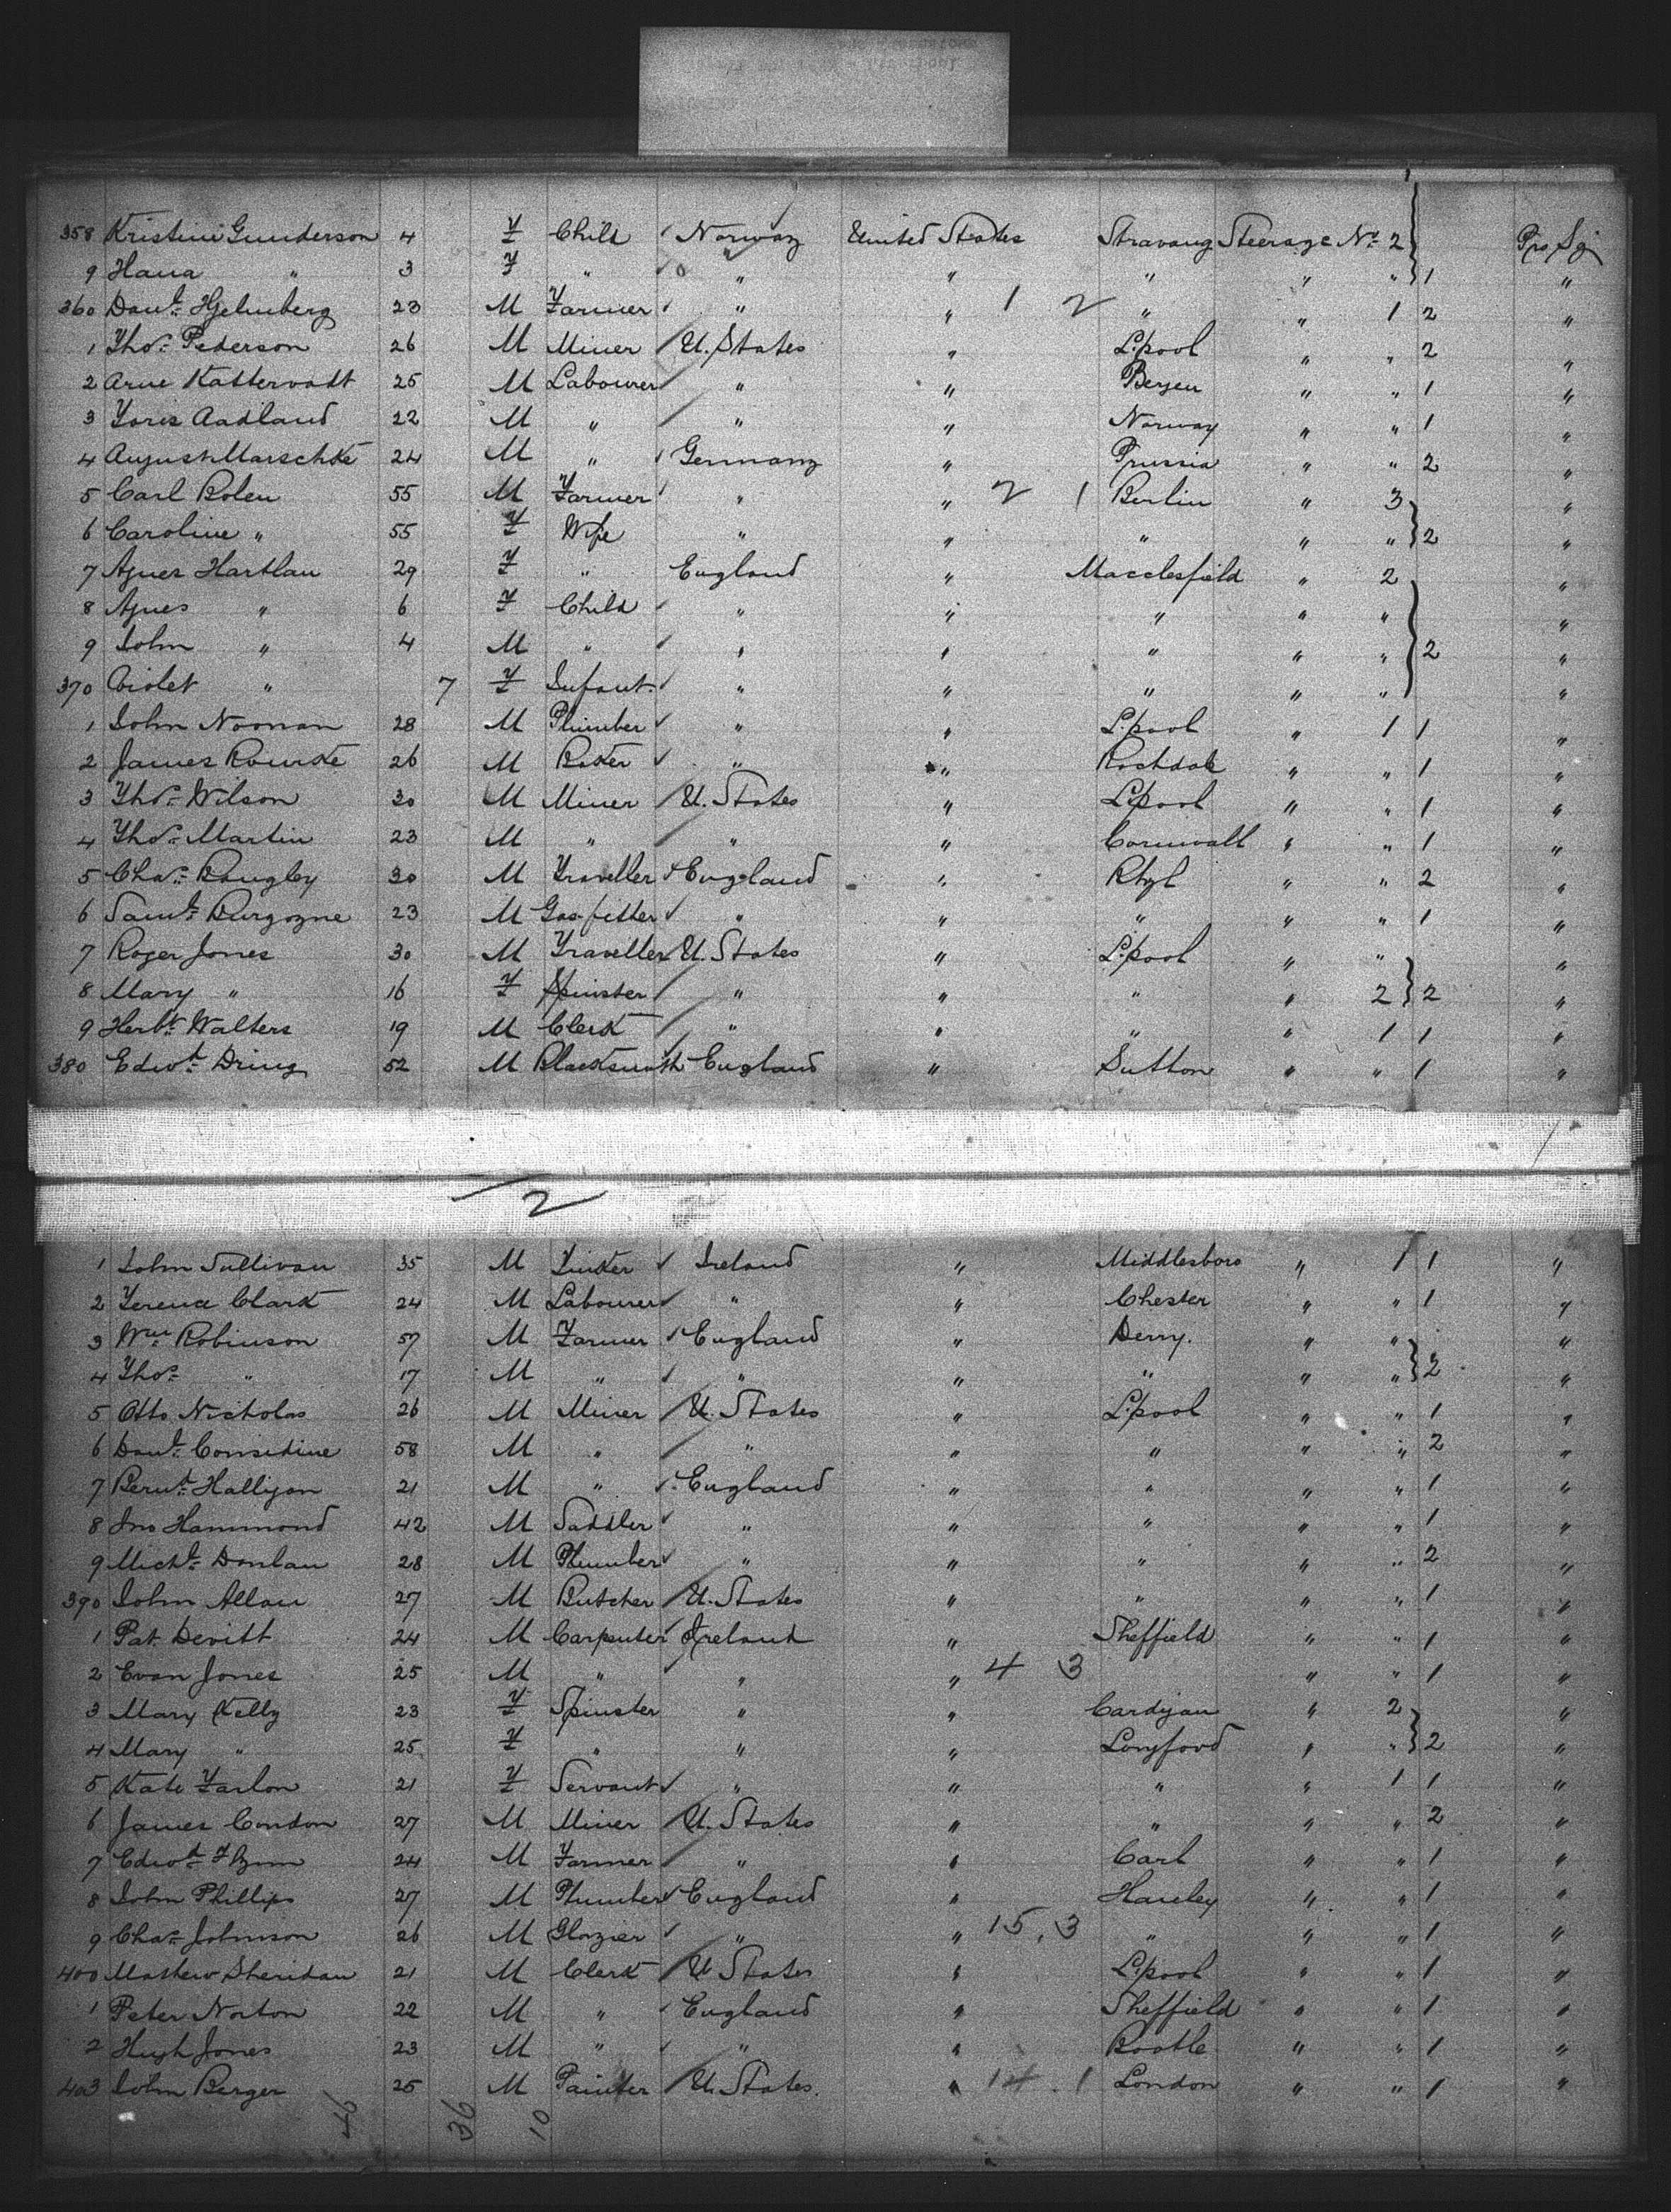 358 Kristine Gunderson 4 F Child Norway United States Stravang Steerage No 2 Pro Sj
9 Hana " 3 F " " " " " " 1 "
360 Danl Hjelmberg 23 M Farmer " " 1 2 " " 1 2 "
1 Thos Pederson 26 M Miner U. States " L.pool " " 2 "
2 Arne Kattervodt 25 M Labourer " " Bergen " " 1 "
3 Joris Aadland 22 M " " " Norway " " 1 "
4 August Marschke 24 M " Germany " Prussia " " 2 "
5 Carl Bolen 55 M Farmer " " 2 1 Berlin " 3 "
6 Caroline " 55 F Wife " " " " " 2 "
7 Agnes Hartlan 29 F " England " Macclesfield " 2 "
8 Agnes " 6 F Child " " " " " "
9 John " 4 M " " " " " " 2 "
370 Violet " 7 F Infant " " " " " "
1 John Noonan 28 M Plumber " " L.pool " 1 1 "
2 James Rourke 26 M Baker " " Rochdale " " 1 "
3 Thos Wilson 30 M Miner U. States " L.pool " " 1 "
4 Thos Martin 23 M " " " Cornwall " " 1 "
5 Chas Langley 30 M Traveller England " Rhyl " " 2 "
6 Saml Burgoyne 23 M Gas fitter " " " " " 1 "
7 Roger Jones 30 M Traveller U. States " L.pool " " "
8 Mary " 16 F Spinster " " " " 2 2 "
9 Herbt Walters 19 M Clerk " " " " 1 1 "
380 Edwd Dring 52 M Blacksmith England " Sutton " " 1 "
2
1 John Sullivan 35 M Tinker Ireland " Middlesboro " 1 1 "
2 Terence Clark 24 M Labourer " " Chester " " 1 "
3 Wm Robinson 57 M Farmer England " Derry. " " "
4 Thos " 17 M " " " " " " 2 "
5 Otto Nicholas 26 M Miner U. States " L.pool " " 1 "
6 Danl Considine 58 M " " " " " " 2 "
7 Bernd Halligan 21 M " England " " " " 1 "
8 Jno Hammond 42 M Saddler " " " " " 1 "
9 Michl Donlan 28 M Plumber " " " " " 2 "
390 John Allan 27 M Butcher U. States " " " " 1 "
1 Pat Devitt 24 M Carpenter Ireland " Sheffield " " 1 "
2 Evan Jones 25 M " " " 4 3 " " 1 "
3 Mary Kelly 23 F Spinster " " Cardigan " 2 "
4 Mary " 25 F " " " Longford " " 2 "
5 Kate Farlon 21 F Servant " " " " 1 1 "
6 James Condon 27 M Miner U. States " " " " 2 "
7 Edwd Flynn 24 M Farmer " " Carl " " 1 "
8 John Phillips 27 M Plumber England " Hanley " " 1 "
9 Chas Johnson 26 M Glazier " " 15 . 3 " " " 1 "
400 Mathew Sheridan 21 M Clerk U States " L.pool " " 1 "
1 Peter Norton 22 M " England " Sheffield " " 1 "
2 Hugh Jones 23 M " " " Bootle " " 1 "
403 John Berger 25 M Painter U. States. " 14 . 1 London " " 1 "
46 36 10